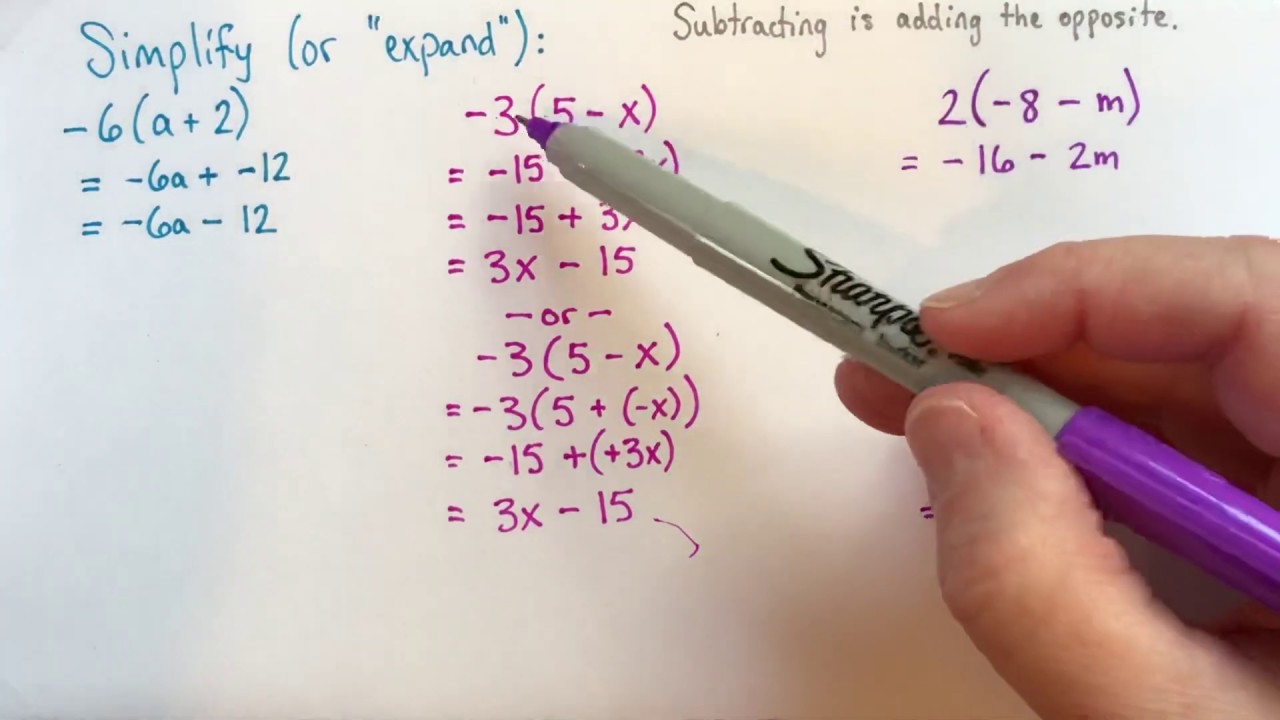 Simplify (or "expand"):
-6(a + 2)
= -6a + -12
= -6a - 12
-3(5 - x)
= -15
= -15 + 3
= 3x - 15
- or -
-3(5 - x)
= -3(5 + (-x))
= -15 + (+3x)
= 3x - 15
Subtracting is adding the opposite.
2(-8 - m)
= -16 - 2m
=
Sharpie